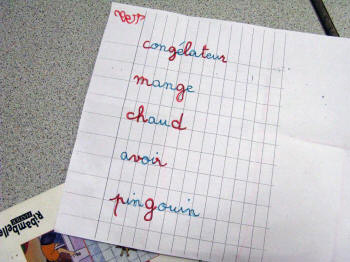 congélateur
mange
chaud
avoir
pingouin
Ribambelle